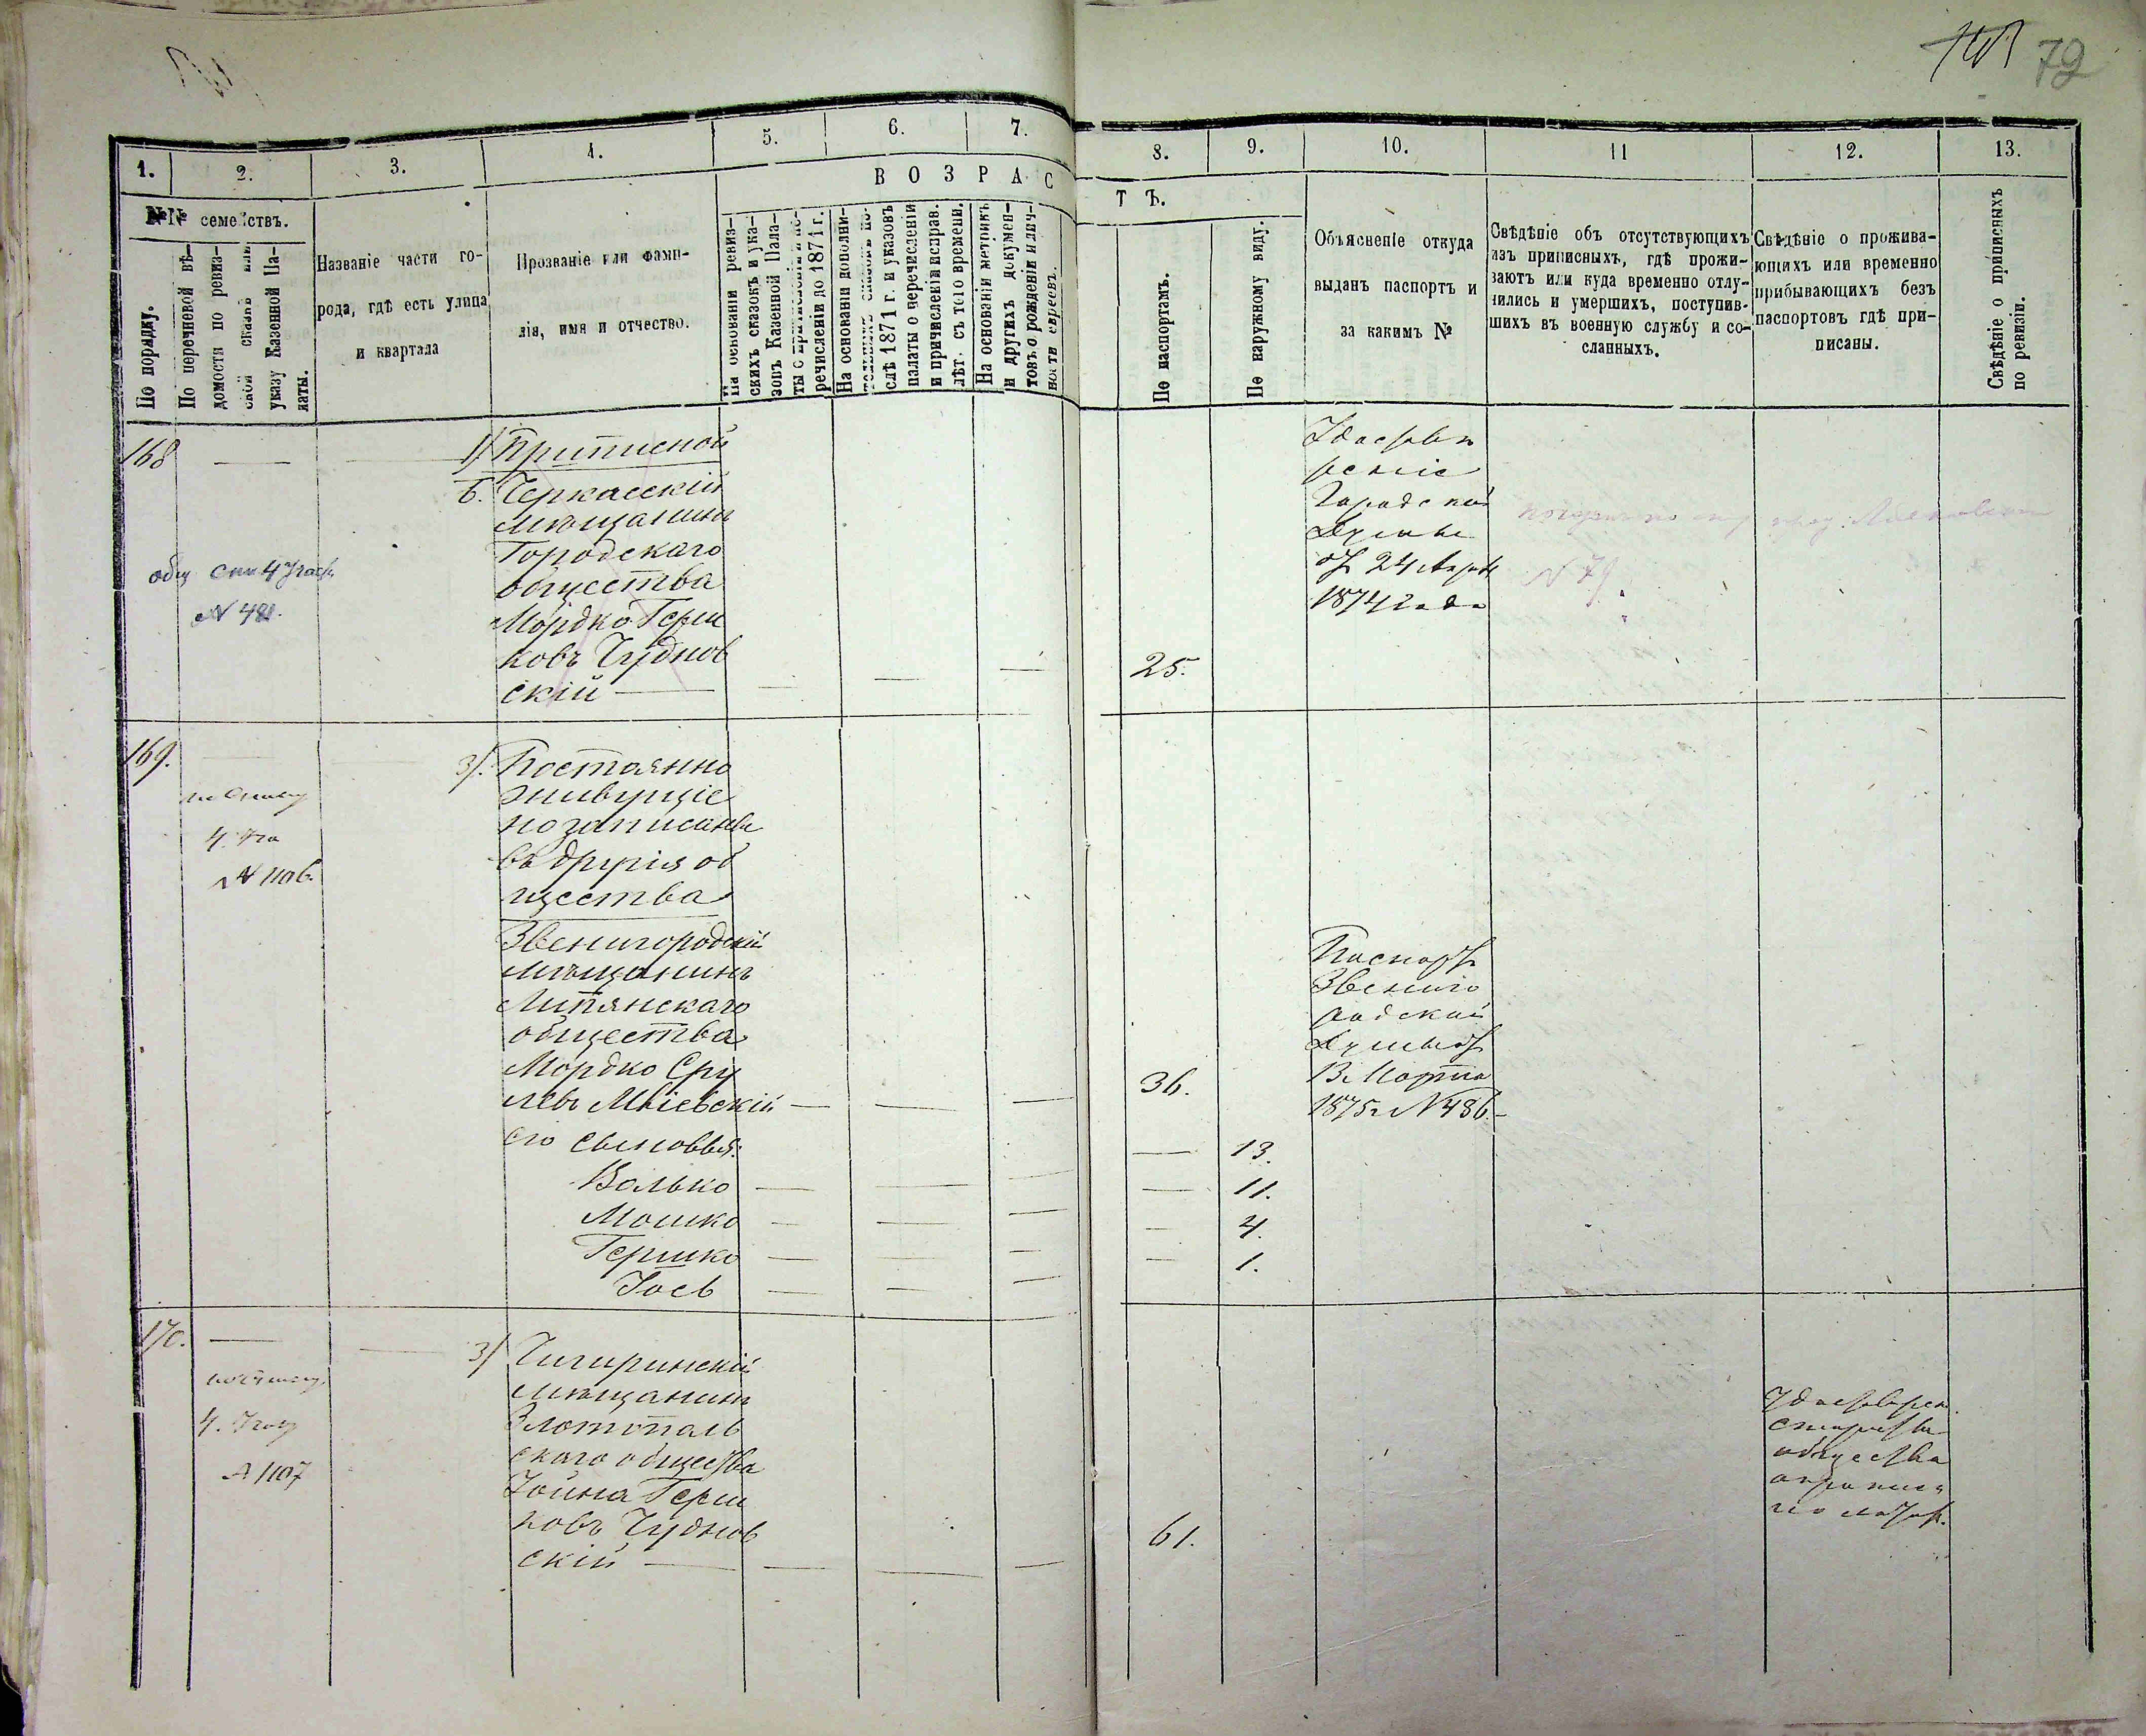 72
1.
2.
3.
4.
5.
6.
7.
8.
9.
10.
11
12.
13.
В О З Р А С
Т Ъ.
№№ семействъ.
По порядку.
По перечневой вѣ-
домости по ревиз-
ской сказкѣ или
указу Казенной Па-
латы.
Названіе части го-
рода, гдѣ есть улица
и квартала
Прозваніе или фами-
лія, имя и отчество.
На основаніи ревиз-
скихъ сказокъ и ука-
зовъ Казенной Пала-
ты
речисленіи до 1871 г.
На основаніи дополни-
слѣ 1871 г. и указовъ
палаты о перечисленіи
и причисленіи исправ.
лѣт. съ того времени.
На основаніи метрикъ
и другихъ докумен-
товъ о рожденіи и лич-
ности евреевъ.
По паспортамъ.
По наружному виду.
Объясненіе откуда
выданъ паспортъ и
за какимъ №
Свѣдѣніе объ отсутствующихъ
изъ приписныхъ, гдѣ прожи-
ваютъ или куда временно отлу-
чились и умершихъ, поступив-
шихъ въ военную службу и со-
сланныхъ.
Свѣдѣніе о прожива-
ющихъ или временно
прибывающихъ безъ
паспортовъ гдѣ при-
писаны.
Свѣдѣніе о приписныхъ
по ревизіи.
168
1/ Приписной
Б. Черкасскій
мѣщанинъ
Городскаго
общества
Мордко Герш
ковъ Чуднов
скій
N 481.
25.
Удостовѣ
реніе
Городской
Думы
от 24 Апр
1874 года
169.
4. Уча
N 1106.
3/. Постоянно
живущіе
но записаны
въ другія об
щества
Звенигородскій
мѣщанинъ
общества
Мордко Сру
левъ
его сыновья:
Волько
Мошко
Гершко
Іось
36.
13.
11.
4.
1.
Паспортъ
Звениго
родской
Думы от
13 Марта
1875 г. N 486.
170.
4. Уча
N 1107
3/ Чигиринскій
мѣщанинъ
Златополь
скаго общества
Іойна Герш
ковъ Чуднов
скій
61.
Удостоверен.
старосты
общества